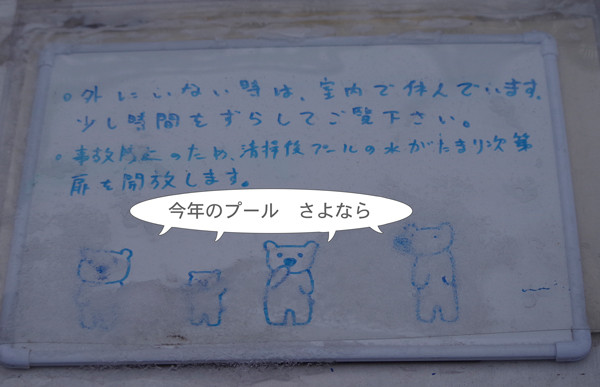 ○外にいない時は、室内で休んでいます。
少し時間をずらしてご覧下さい。
・事故防止のため、清掃後プールの水がたまり次第
扉を開放します。
今年のプール　さよなら